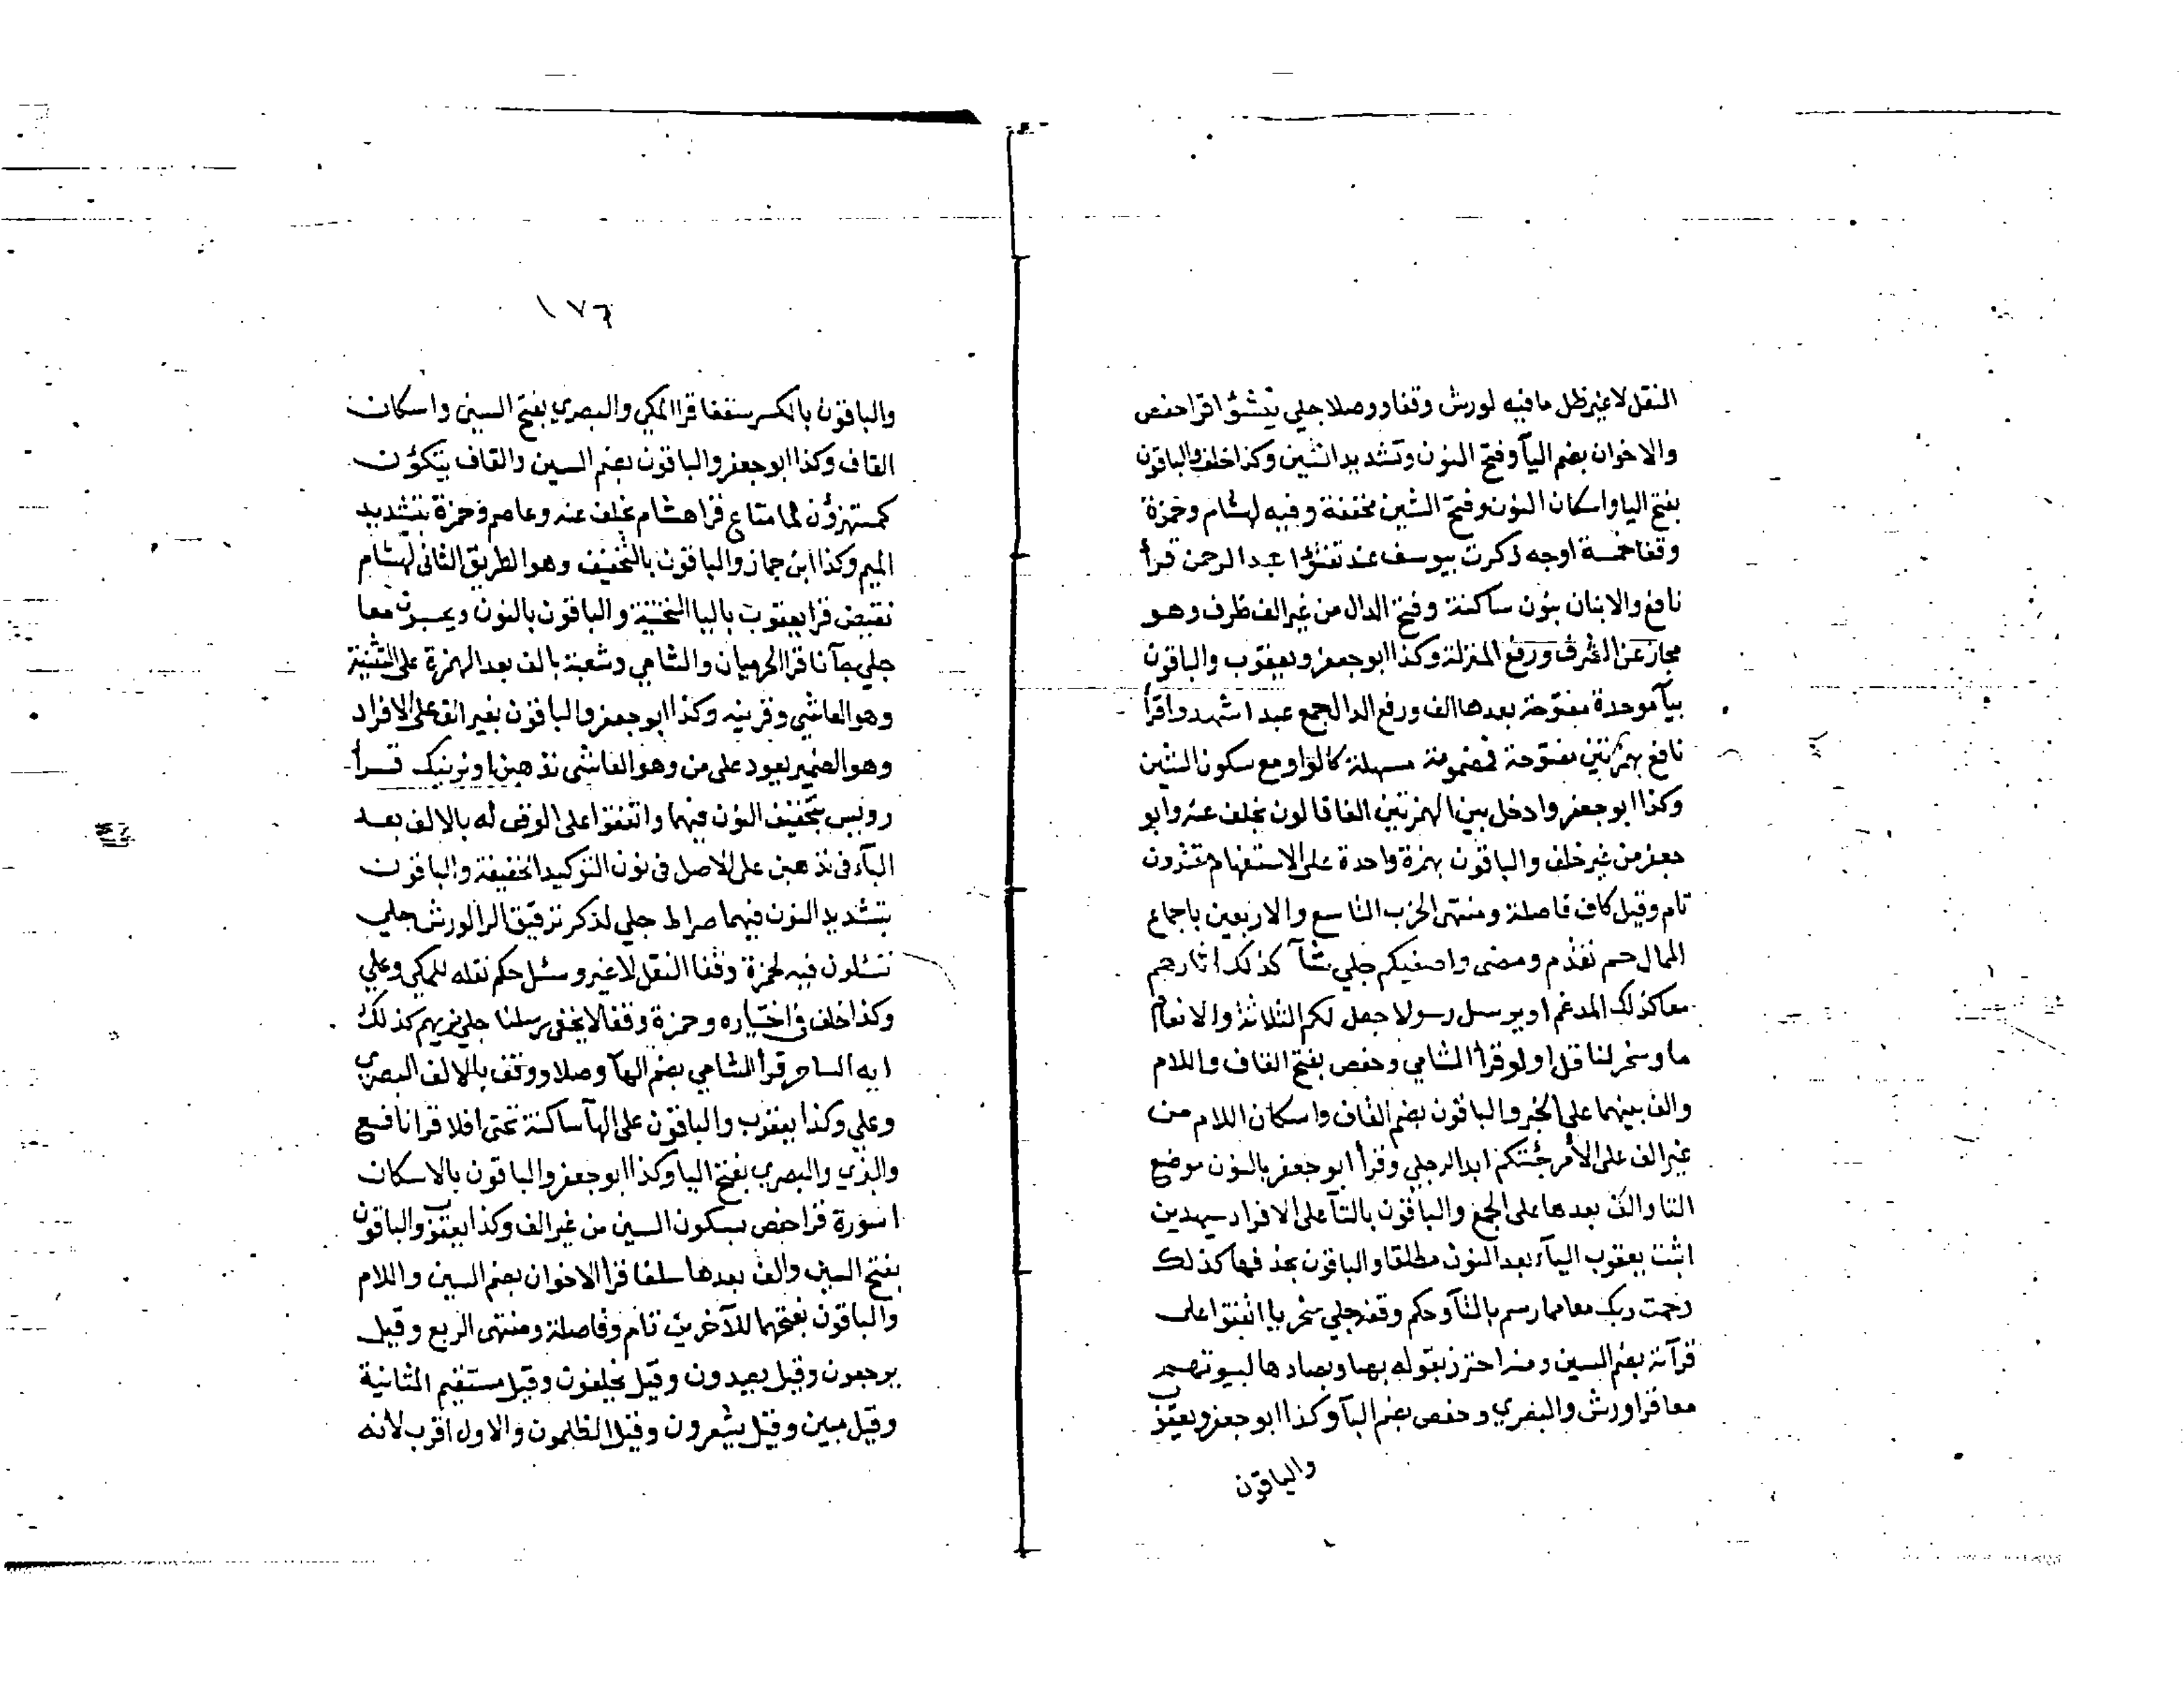 النقل لا غير ظل ما فيه لورش وقفا ووصلا جلي ينشؤ اقرا حفص
والاخوان بضم اليآ وفتح النون وتشديد الشين وكذا خلف والباقون
بفتح اليا واسكان النون وفتح الشين مخففة وفيه لهشام وحمزة
وقفا خمسة اوجه ذكرت بيوسف عند تفتؤا عبد الرحمن قرأ
نافع والابنان بنون ساكنة وفتح الدال من غير الف ظرف وهو
مجاز عن الشرف ورفع المنزلة وكذا ابو جعفر ويعقوب والباقون
بيآ موحدة مفتوحة بعدها الف ورفع الدال جمع عبد اشهدوا قرأ
نافع بهمزتين مفتوحة فمضمومة مسهلة كالواو مع سكون الشين
وكذا ابو جعفر وادخل بين الهمزتين الفا قالون بخلف عنه وابو
جعفر من غير خلف والباقون بهمزة واحدة على الاستفهام مقتدون
تام وقيل كاف فاصلة ومنتهى الحزب التاسع والاربعين باجماع
الممال حم تقدم ومضى واصفيكم جلي شآ كذلك اثارهم
معا كذلك المدغم او يرسل رسولا جعل لكم الثلاثة والانعام
ما وسخر لنا قل اولو قرأ الشامي وحفص بفتح القاف واللام
والف بينهما على الخبر والباقون بضم القاف واسكان اللام من
غير الف على الأمر جئتكم ابداله جلي وقرأ ابو جعفر بالنون موضع
التا والف بعدها على الجمع والباقون بالتآ على الافراد سيهدين
اثبت يعقوب اليآء بعد النون مطلقا والباقون بحذفها كذلك
رحمت ربك معا مما رسم بالتآ وحكم وقفه جلي سخريا اتفقوا على
قرآته بضم السين ومنه احترز بقوله بها وبصادها لبيوتهم
معا قرا ورش والبصري وحفص بضم البآ وكذا ابو جعفر ويعقوب
والباقون
١٧٦
والباقون بالكسر سقفا قرا المكي والبصري بفتح السين واسكان
القاف وكذا ابو جعفر والباقون بضم السين والقاف يتكؤن
كمستهزؤن لما متاع قرا هشام بخلف عنه وعاصم وحمزة بتشديد
الميم وكذا ابن جماز والباقون بالتخفيف وهو الطريق الثاني لهشام
نقيض قرا يعقوب باليا التحتية والباقون بالنون ويحسبون معا
جلي جآنا قرا الحرميان والشامي وشعبة بالف بعد الهمزة على التثنية
وهو العاشي وقرينه وكذا ابو جعفر والباقون بغير الف على الافراد
وهو الضمير يعود على من وهو العاشي نذهبن او نرينك قرأ
رويس بتخفيف النون فيهما واتفقوا على الوقف له بالالف بعد
البآء في نذهبن على الاصل في نون التوكيد الخفيفة والباقون
بتشديد النون فيهما صراط جلي لذكر ترقيق الرا لورش جلي
تسئلون فيه لحمزة وقفا النقل لا غير وسئل حكم نقله للمكي وعلي
وكذا خلف في اختياره وحمزة وقفا لا يخفى رسلنا جلي نريهم كذلك
ايه الساحر قرأ الشامي بضم الهآ وصلا ووقف بالالف البصري
وعلي وكذا يعقوب والباقون على الهآ ساكنة تحتي افلا قرا نافع
والبزي والبصري بفتح اليا وكذا ابو جعفر والباقون بالاسكان
اسورة قرا حفص بسكون السين من غير الف وكذا يعقوب والباقون
بفتح السين والف بعدها سلفا قرا الاخوان بضم السين واللام
والباقون بفتحهما للآخرين تام وفاصلة ومنتهى الربع وقيل
يرجعون وقيل يعبدون وقيل يخلفون وقيل مستقيم الثانية
وقيل مبين وقيل يشعرون وقيل الظلمون والاول اقرب لأنه